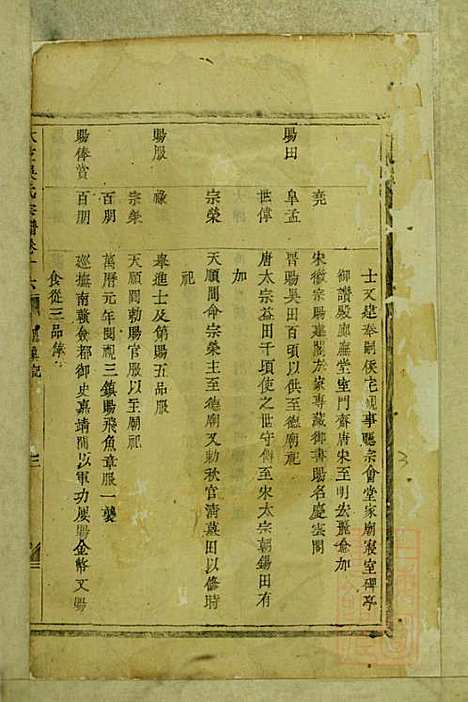 士又建奉嗣侯宅視事廳宗會堂家廟寢室碑亭
御讚殿廊廡堂室門齋唐宋至明宏飛侖加
堯 宋徽宗賜建閣於家專藏御書賜名慶雲閣
賜田 阜孟 晉賜吳田百頃以供至德廟祀
世偉 唐太宗益田千頃使之世守傳至宋太宗朝錫田有
加
宗榮 天順間命宗榮主至德廟又勅秋官清蒸田以脩時
祀
賜服 祿 舉進士及第賜五品服
宗榮 天順間勅賜官服以主廟祀
百朋 萬曆元年閱視三鎮賜飛魚章服一襲
賜俸賞 百朋 巡撫南贛僉都御史嘉靖間以軍功屢賜金幣又賜
食從三品俸
吳氏宗譜卷十六